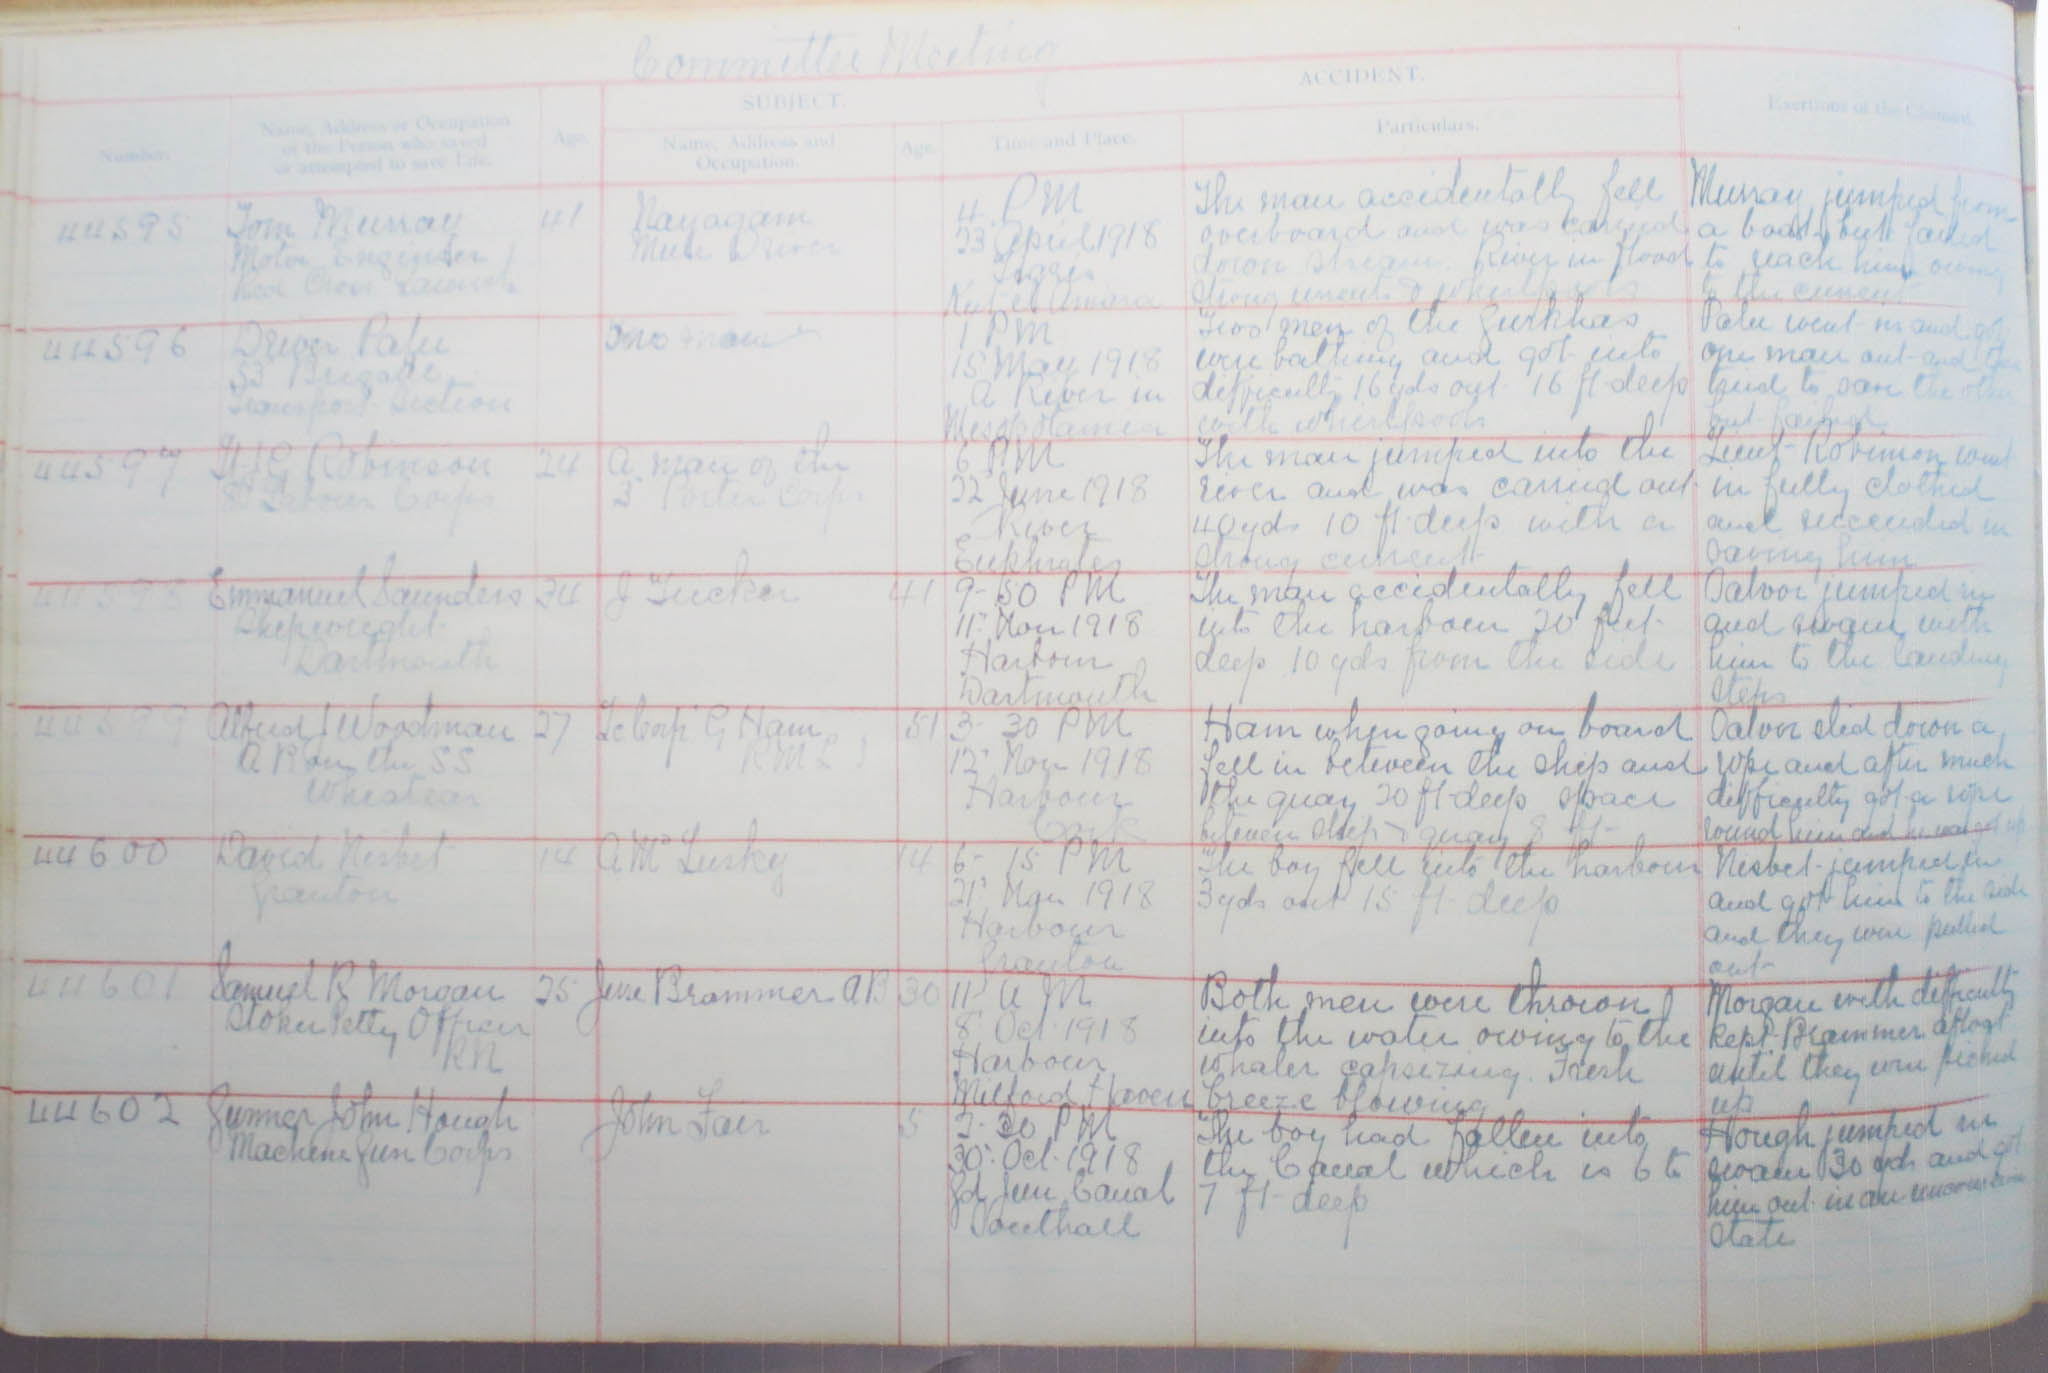 Committee Meeting
SUBJECT.
ACCIDENT.
Number.
Name, Address or Occupation
of the Person who saved
or attempted to save Life.
Age.
Name, Address and
Occupation.
Age.
Time and Place.
Particulars.
Exertions of the Claimant.
44595
Tom Murray
Motor Engineer
Red Cross Launch
41
Nayagam
Mule Driver
4 PM
23 April 1918
Tigris
Kut el Amara
The man accidentally fell
overboard and was carried
down stream. River in flood
strong currents & whirlpools
Murray jumped from
a boat but failed
to reach him owing
to the current
44596
Driver Palu
53 Brigade
Transport Section
Two men
1 PM
15 May 1918
A River in
Mesopotamia
Two men of the Gurkhas
were bathing and got into
difficulty 16 yds out 16 ft deep
with whirlpools
Palu went in and got
one man out and then
tried to save the other
but failed
44597
Robinson
Labour Corps
24
A man of the
3 Porter Corps
6 PM
22 June 1918
River
Euphrates
The man jumped into the
river and was carried out
40 yds 10 ft deep with a
strong current
Lieut Robinson went
in fully clothed
and succeeded in
saving him
44598
Emmanuel Saunders
Shipwright
Dartmouth
34
J Tucker
41
9-50 PM
11 Nov 1918
Harbour
Dartmouth
The man accidentally fell
into the harbour 20 feet
deep 10 yds from the side
Salvor jumped in
and swam with
him to the landing
steps
44599
Alfred J Woodman
AB on the SS
Wheatear
27
Lc Corp G Ham
RMLI
51
3-30 PM
12 Nov 1918
Harbour
Ham when going on board
fell in between the ship and
the quay 20 ft deep space
between ship & quay 8 ft
Salvor slid down a
rope and after much
difficulty got a rope
round him and he was got up
44600
David Nesbet
Granton
14
A McLusky
14
6-15 PM
21 Nov 1918
Harbour
Granton
The boy fell into the harbour
3 yds out 15 ft deep
Nesbet jumped in
and got him to the side
and they were pulled
out
44601
Samuel R Morgan
Stoker Petty Officer
RN
25
Jesse Brammer AB
30
11 A M
8 Oct 1918
Harbour
Milford Haven
Both men were thrown
into the water owing to the
whaler capsizing. Fresh
breeze blowing
Morgan with difficulty
kept Brammer afloat
until they were picked
up
44602
Gunner John Hough
Machine Gun Corps
John Fair
5
2-30 PM
30 Oct 1918
Gd Jun Canal
Southall
The boy had fallen into
the Canal which is 6 to
7 ft deep
Hough jumped in
swam 30 yds and got
him out in an unconscious
state